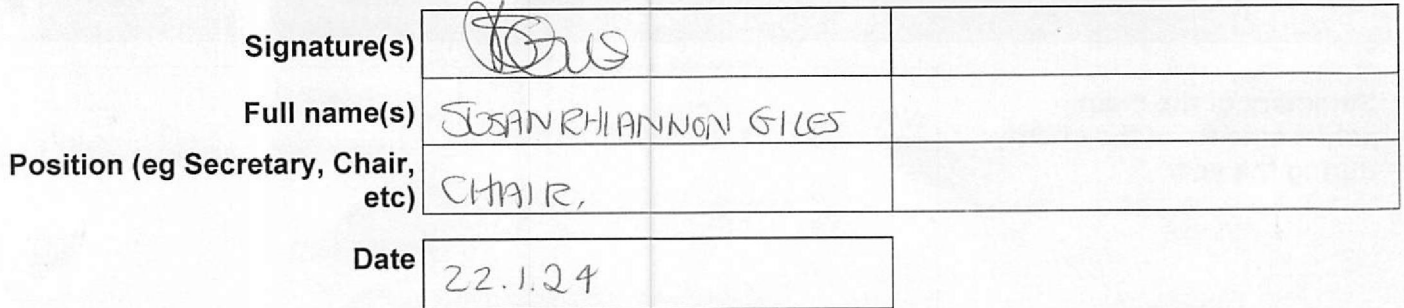 Signature(s)
Full name(s) SUSAN RHIANNON GILES
Position (eg Secretary, Chair,
etc) CHAIR,
Date 22.1.24